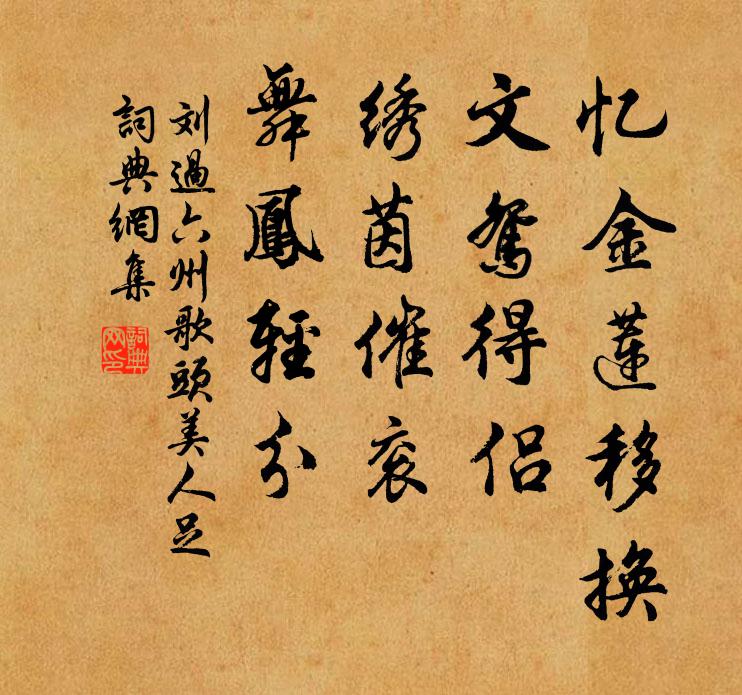 忆金莲移换
文鸳得侣
绣茵催衮
舞鳳輕分
刘過六州歌頭美人足
詞典網集
詞典网印